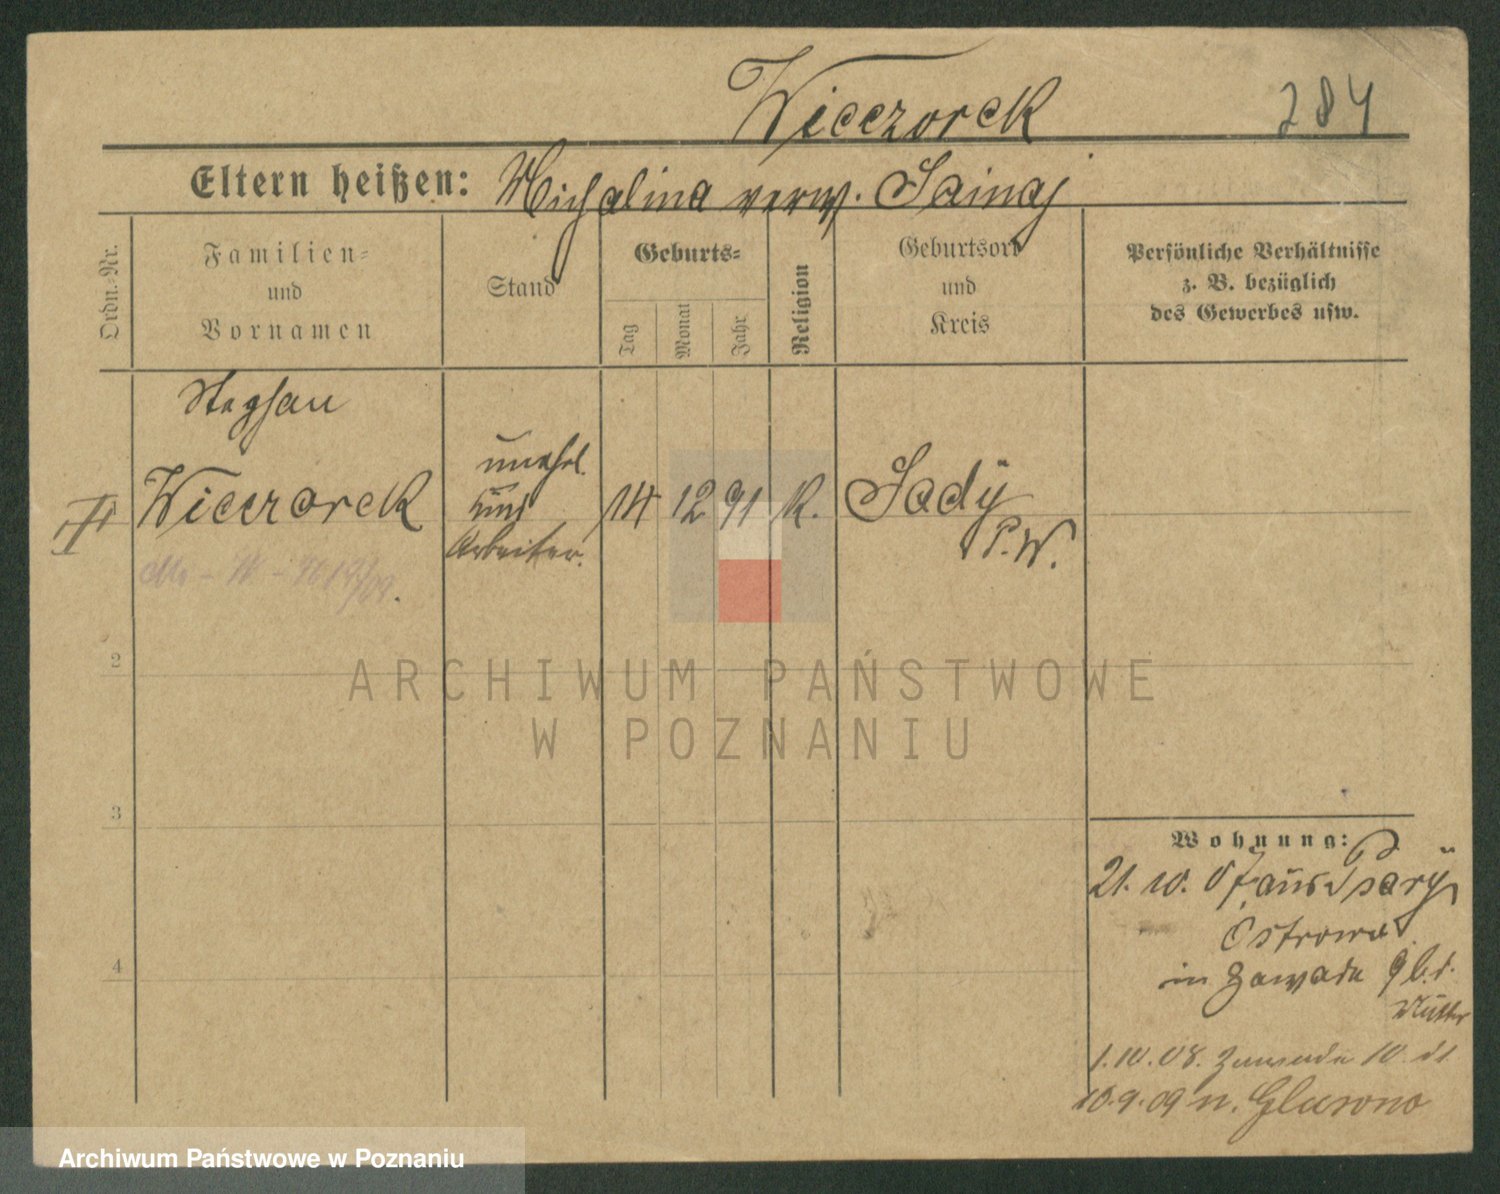 Wieczorek 284
Eltern heißen: Michalina verw. Sainaj
Ordn.-Nr.
Familien-
und
Vornamen
Stand
Geburts-
Tag
Monat
Jahr
Religion
Geburtsort
und
Kreis
Persönliche Verhältnisse
z. B. bezüglich
des Gewerbes usw.
Stephan
Wieczorek
unehel.
Kind
Arbeiter.
14 12 91 K. Sady
P. W.
2
3
4
Wohnung:
21. 10. 07 aus Psary
Ostrowo
in Zawada 9 b. d.
Mutter
1. 10. 08. Zawada 10
10. 9. 09 n.
ARCHIWUM PAŃSTWOWE
W POZNANIU
Archiwum Państwowe w Poznaniu